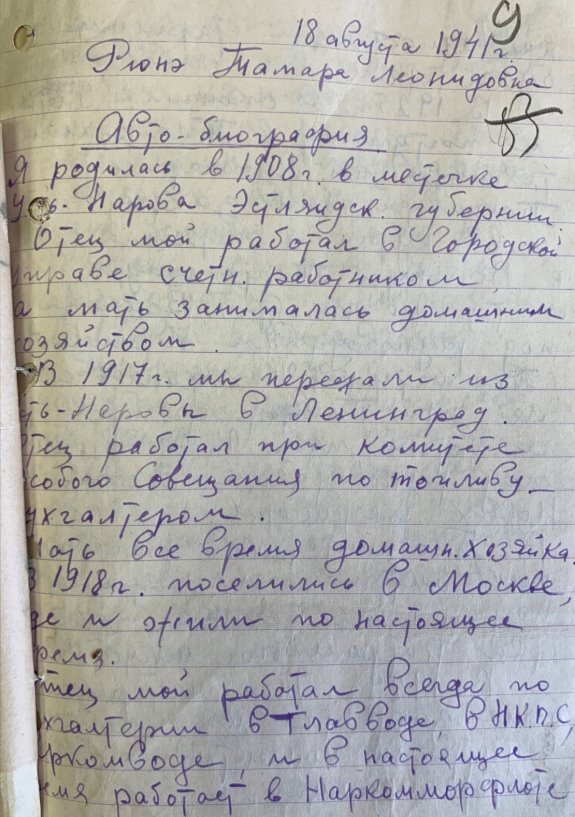 9
18 августа 1941г.
Рюнэ Тамара Леонидовна
Авто-биография
Я родилась в 1908г. в местечке
Усть-Нарова Эстляндск. губернии.
Отец мой работал в Городской
управе счетн. работником,
а мать занималась домашним
хозяйством.
В 1917г. мы переехали из
ть-Наровы в Ленинград.
тец работал при комитете
собого Совещания по топливу
ухгалтером.
Мать все время домашн. хозяйка.
В 1918г. поселились в Москве,
де и жили по настоящее
ремя.
тец мой работал всегда по
хгалтерии в Главводе, в НКПС,
ркомводе, и в настоящее
емя работает в Наркомморфлоте